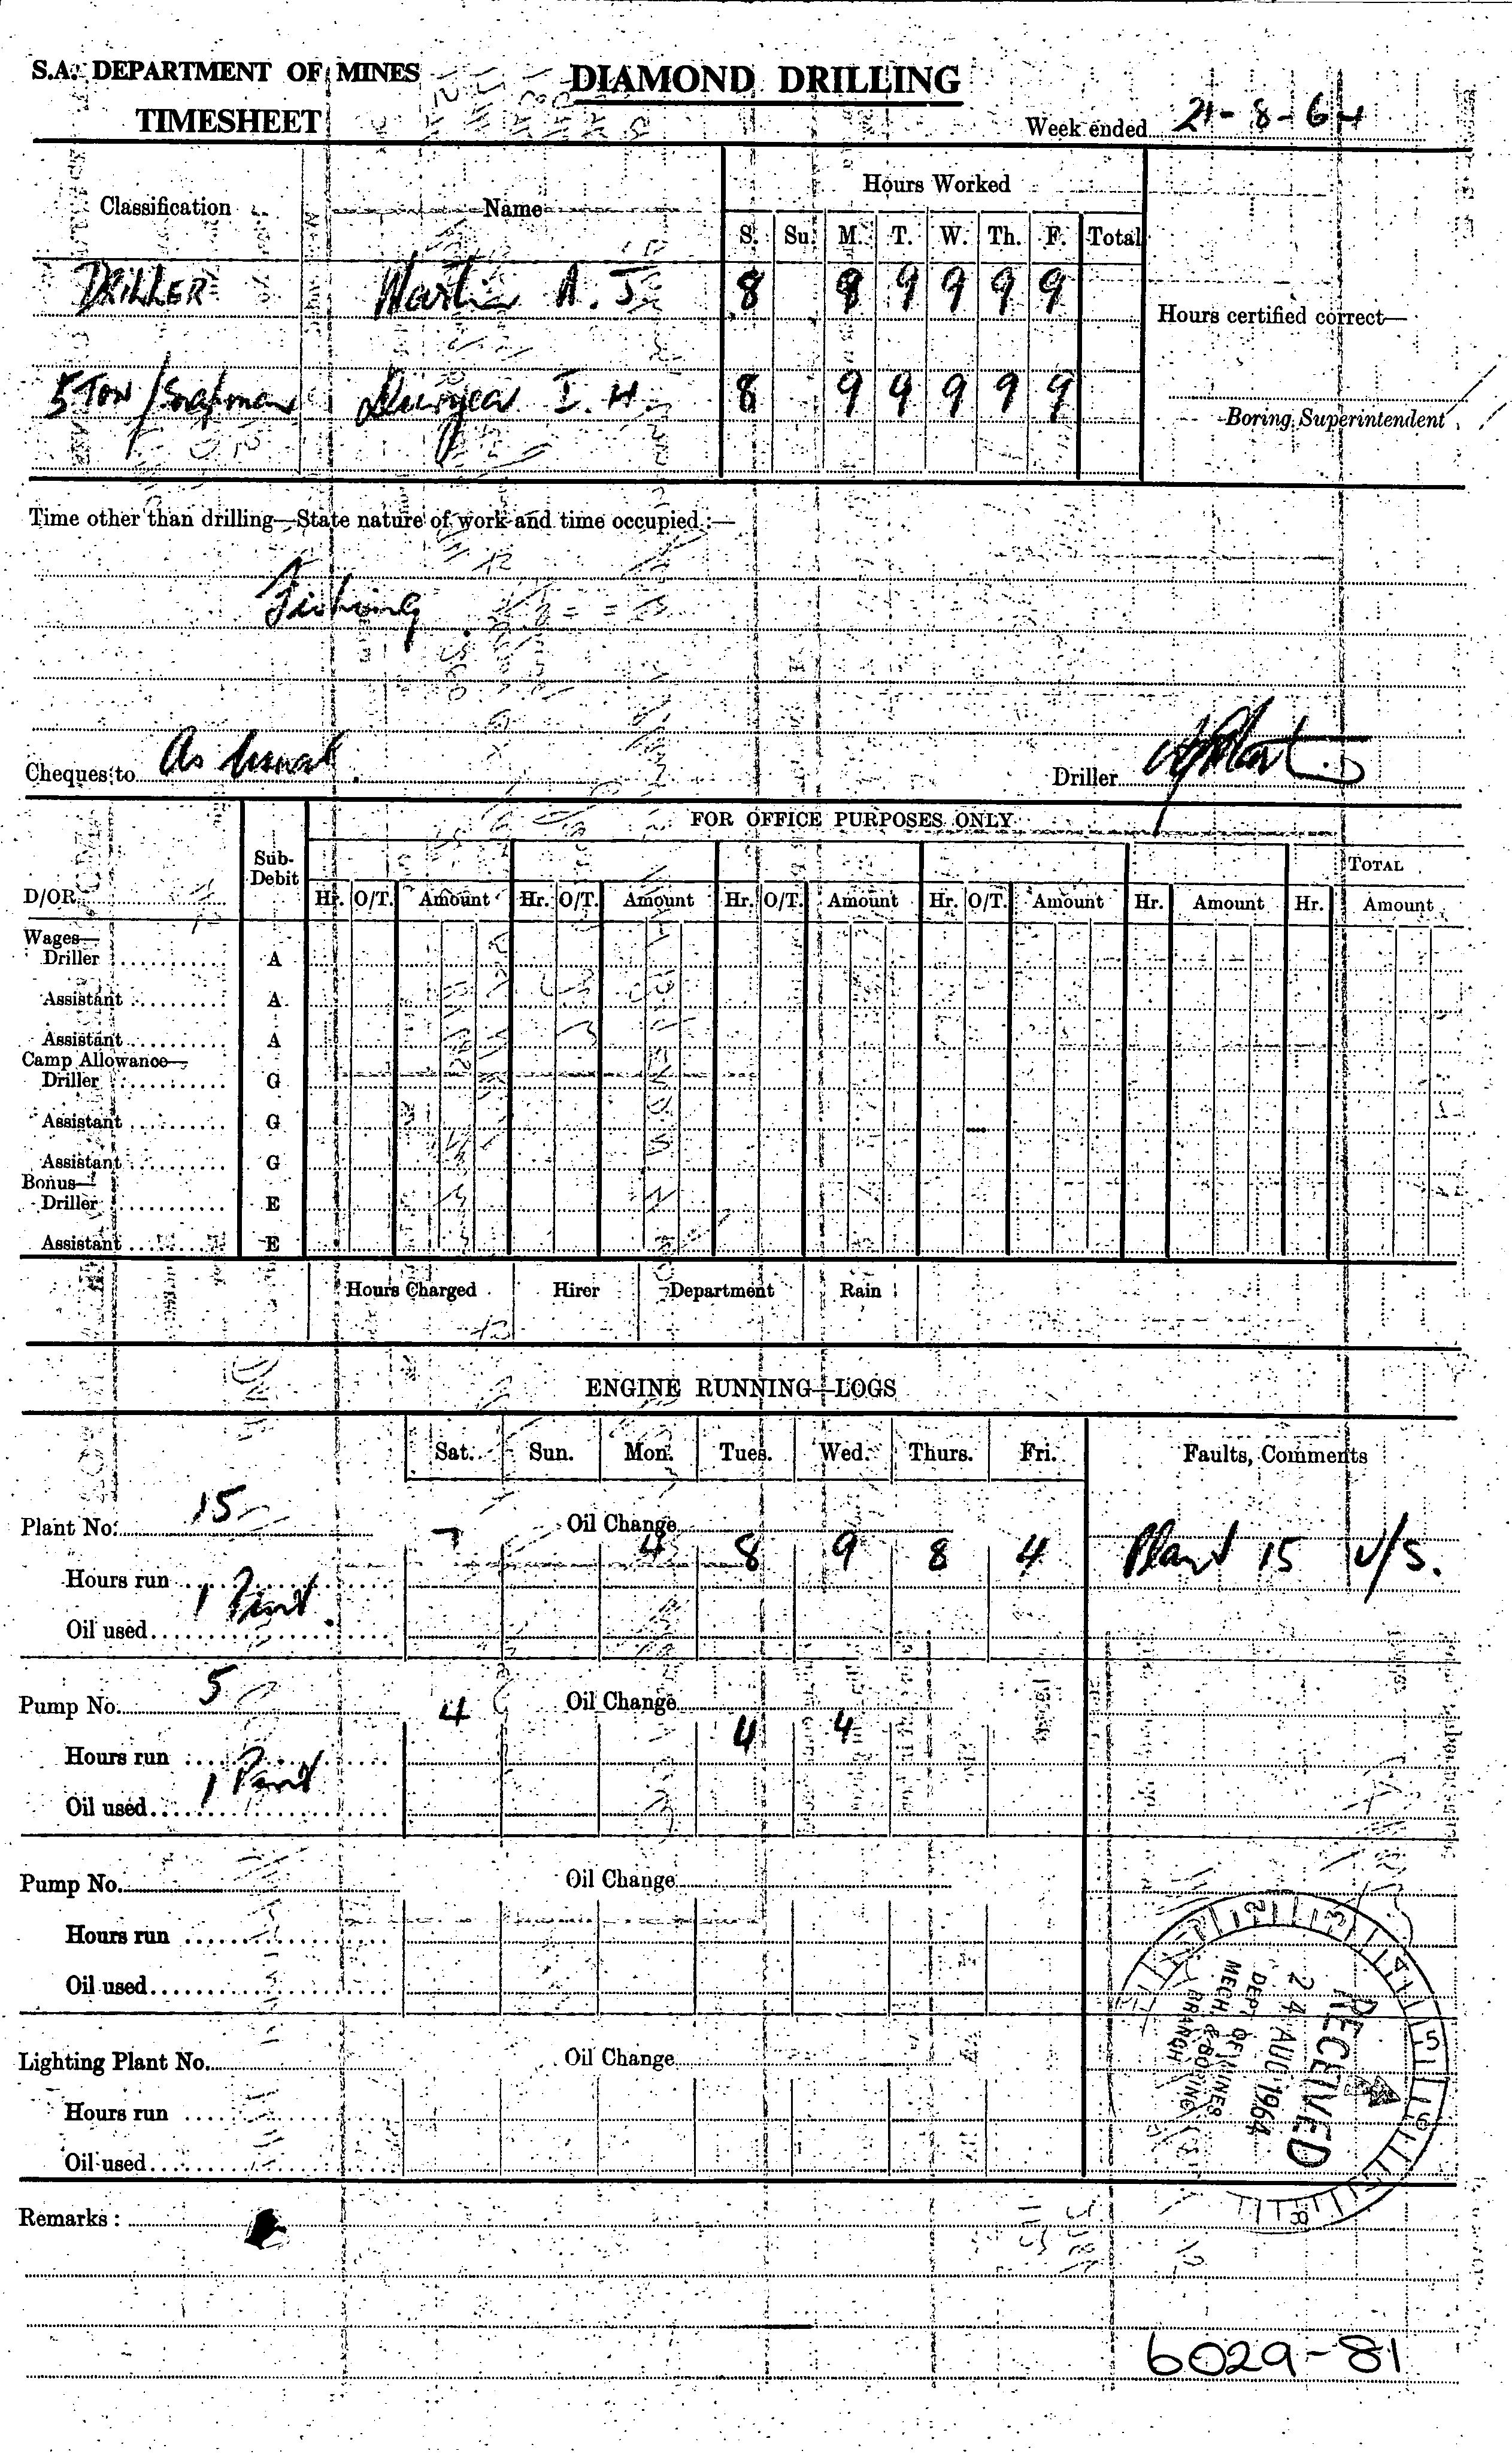 S.A. DEPARTMENT OF MINES
DIAMOND DRILLING
TIMESHEET
Week ended 21-8-64
Classification Name Hours Worked
S. Su. M. T. W. Th. F. Total
DRILLER Martin A. J 8 9 9 9 9 9
Hours certified correct—
5 TON / I. H. 8 9 9 9 9 9
Boring Superintendent
Time other than drilling—State nature of work and time occupied :—
Fishing
Cheques to As Usual.
Driller AJMartin
FOR OFFICE PURPOSES ONLY
D/OR Sub-Debit TOTAL
Hr. O/T. Amount Hr. O/T. Amount Hr. O/T. Amount Hr. O/T. Amount Hr. Amount Hr. Amount
Wages—
Driller A
Assistant A
Assistant A
Camp Allowance—
Driller G
Assistant G
Assistant G
Bonus—
Driller E
Assistant E
Hours Charged Hirer Department Rain
ENGINE RUNNING—LOGS
Sat. Sun. Mon. Tues. Wed. Thurs. Fri. Faults, Comments
Plant No. 15 Oil Change
Hours run 7 4 8 9 8 4 Plant 15 U/S.
Oil used 1 Pint.
Pump No. 5 Oil Change
Hours run 4 4 4
Oil used 1 Pint
Pump No. Oil Change
Hours run
Oil used
Lighting Plant No. Oil Change
Hours run
Oil used
RECEIVED
24 AUG 1964
DEPT OF MINES
MECH. & BORING
BRANCH
Remarks :
6029-81